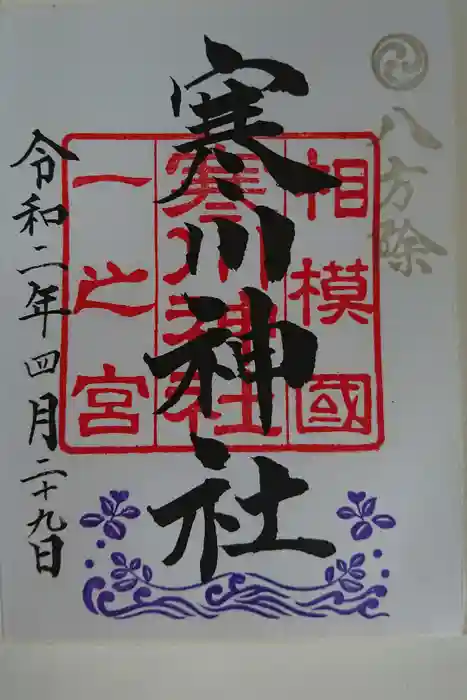 八方除
寒川神社
相模國
寒川神社
一之宮
令和二年四月二十九日